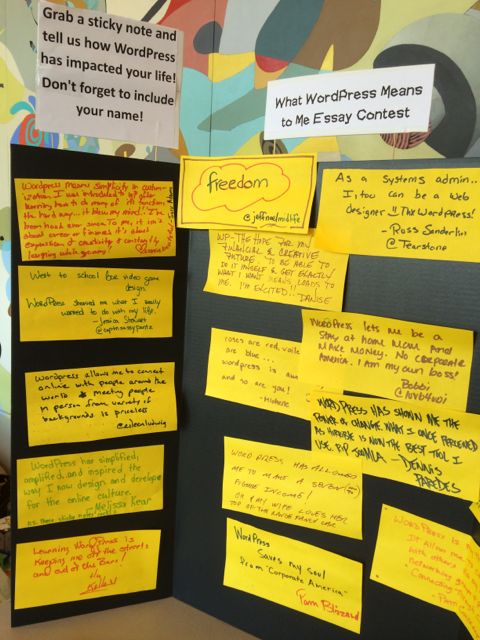 Grab a sticky note and
tell us how WordPress
has impacted your life!
Don't forget to include
your name!
What WordPress Means
to Me Essay Contest
Wordpress means simplicity in custom-
ization - I was introduced to WP after
learning how to do many of its functions
the hard way... it blew my mind... I've
been hooked ever since. To me, it isn't
about career or finances it's about
expression of creativity & constantly
learning while growing!
Went to school for video game
design.
WordPress showed me what I really
wanted to do with my life.
- Jessica
Wordpress allows me to connect
online with people around the
world & meeting people
in person from variety of
backgrounds is priceless
@eileenludwig
WordPress has simplified,
amplified, and inspired the
way I now design and develope
for the online culture.
Melissa
Learning WordPress is
Keeping me off the streets
and out of the Bars!
freedom
@jeffreelmdlife
WP - THE HOPE FOR MY
FINANCIAL & CREATIVE
FUTURE. TO BE ABLE TO
DO IT MYSELF & GET EXACTLY
WHAT I WANT MEANS LOADS TO
ME. I'M EXCITED!!
roses are red, violets
are blue...
wordpress is
and so are you!
WORDPRESS HAS ALLOWED
ME TO MAKE A
INCOME!
OH & MY WIFE LOVES HER
TOP OF THE
WordPress
Saves my soul
From "Corporate America"
Pam Blizzard
As a systems admin..
I, too can be a web
designer
Thx WordPress!
- Ross Sanderlin
@Tearstone
WORDPRESS lets me be a
STAY at home mom AND
MAKE MONEY. NO CORPORATE
AMERICA. I AM my own boss!
Bobbi
WORDPRESS HAS SHOWN ME THE
POWER OF CHANGE. WHAT I ONCE PERCEIVED
AS INFERIOR IS NOW THE BEST TOOL I
USE. RIP JOOMLA - DENNIS
PAREDES
WORDPRESS is
It Allow me
with others
networking
Connecting